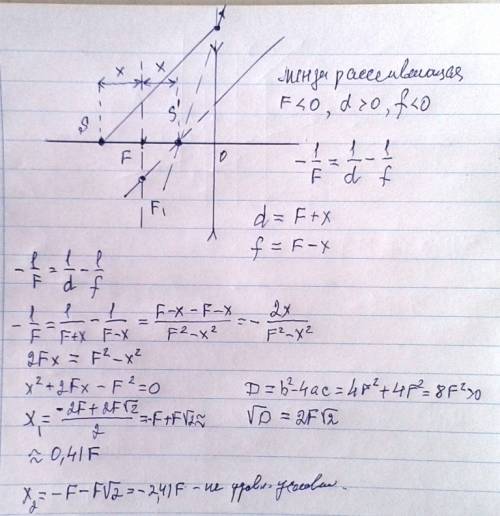 x x
S F S' O
F₁
линза рассеивающая
F<0, d>0, f<0
-1/F = 1/d - 1/f
d = F+x
f = F-x
-1/F = 1/d - 1/f
-1/F = 1/(F+x) - 1/(F-x) = (F-x-F-x)/(F²-x²) = -2x/(F²-x²)
2Fx = F²-x²
x²+2Fx-F²=0
D=b²-4ac=4F²+4F²=8F²>0
x₁ = (-2F+2F√2)/2 = -F+F√2 ≈
√D = 2F√2
≈ 0,41F
x₂ = -F-F√2 = -2,41F - не удовл. условию.